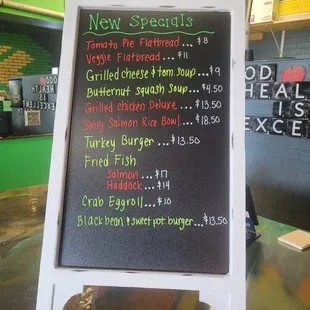 New Specials
Tomato Pie Flatbread... $8
Veggie Flatbread... $11
Grilled cheese & tom soup... $9
Butternut squash soup... $4.50
Grilled chicken Deluxe... $13.50
Spicy Salmon Rice Bowl... $18.50
Turkey Burger... $13.50
Fried Fish
Salmon... $17
Haddock... $14
Crab Eggroll... $10
Black bean & sweet pot burger... $13.50
OD
HEAL
IS
EXCE
HEALTH
IS
EXCELLENT